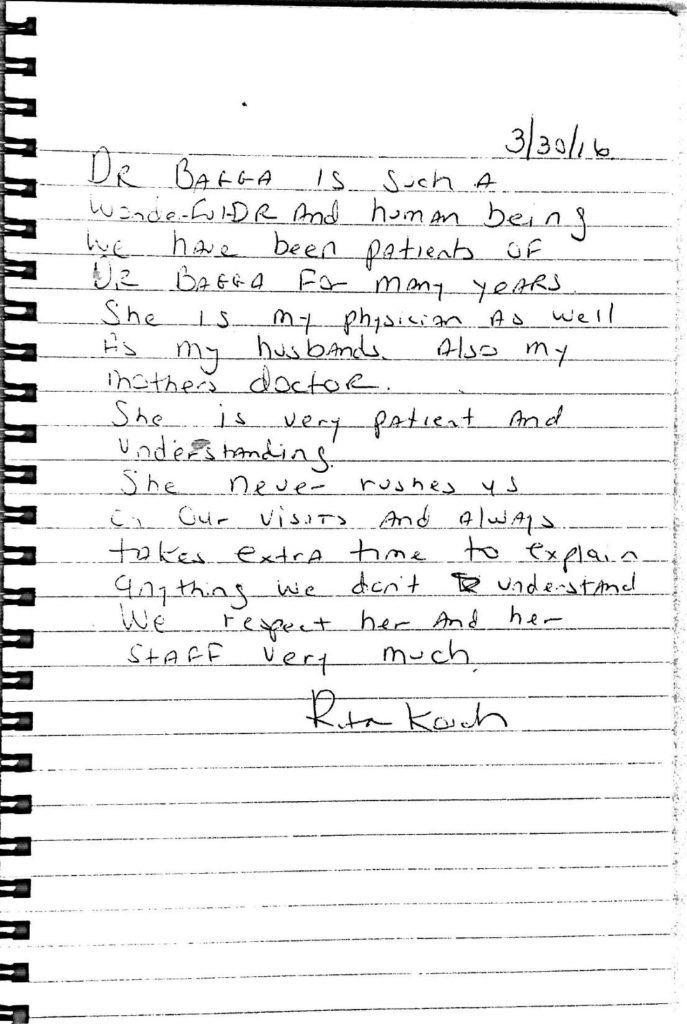 3/30/16
DR BAGGA IS Such A
Wonderful DR And human being
We have been patients OF
DR BAGGA For many yeARS.
She IS my physician As well
As my husbands. Also my
mothers doctor.
She is very patient And
Understanding.
She never rushes us
in Our VISITS And AlwAys
takes extra time to explain
Anything we don't understand
We respect her And her
STAFF very much.
Rita